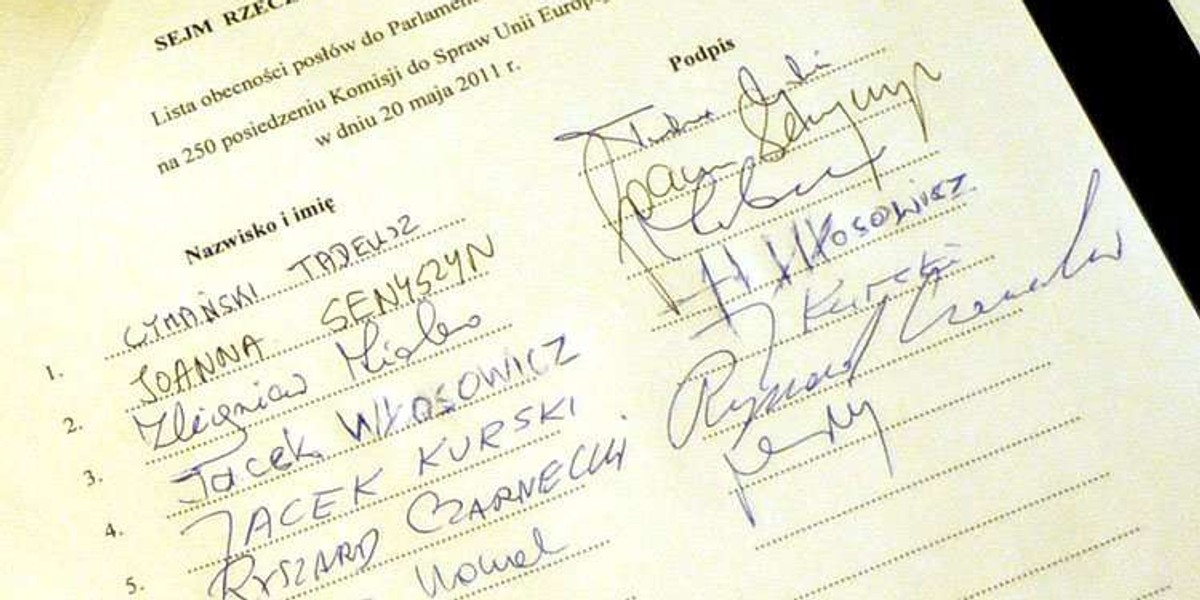 SEJM RZECZ
Lista obecności posłów do Parlamen
na 250 posiedzeniu Komisji do Spraw Unii Europ
w dniu 20 maja 2011 r.
Nazwisko i imię Podpis
1. CYMAŃSKI TADEUSZ
2. JOANNA SENYSZYN
3. Zbigniew Ziobro
4. Jacek WŁOSOWICZ J WŁOSOWICZ
5. JACEK KURSKI J Kurski
RYSZARD CZARNECKI Ryszard Czarnecki